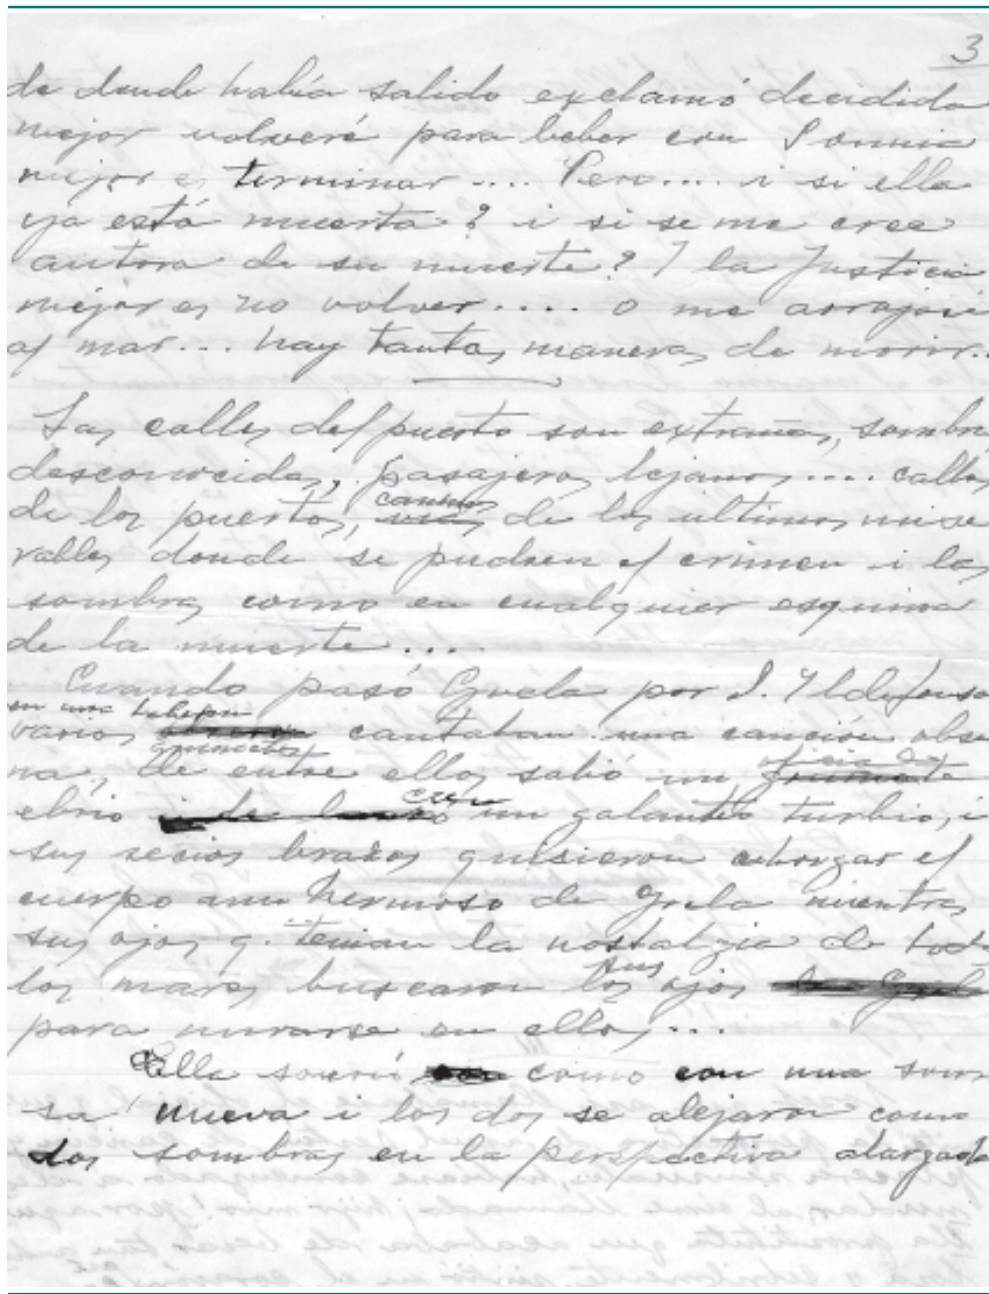 3
de donde había salido exclamó decidida
mejor volveré para beber con Sonnia
mejor es terminar .... Pero.... i si ella
ya está muerta? i si se me cree
autora de su muerte? I la Justicia
mejor es no volver .... o me arrojaré
al mar... hay tantas maneras de morir..
Las calles del puerto son extrañas, sombras
desconocidas, pasajeros lejanos .... calles
caminos
de los puertos, de los ultimos mise
rables donde se pudren el crimen i las
sombras como en cualquier esquina
de la muerte ....
Cuando pasó Grela por S. Yldefonso
en una
varios cantaban una canción obse
grumetes oficial de
na, de entre ellos salió un grumete
ebrio con un galanteo turbio, i
sus recios brazos quisieron
el
cuerpo aun hermoso de Grela mientras
sus ojos q. tenian la nostalgia de todos
sus
los mares buscaron los ojos de Grela
para mirarse en ellos ...
Ella sonrió como con una sonri
sa nueva i los dos se alejaron como
dos sombras en la perspectiva alargada